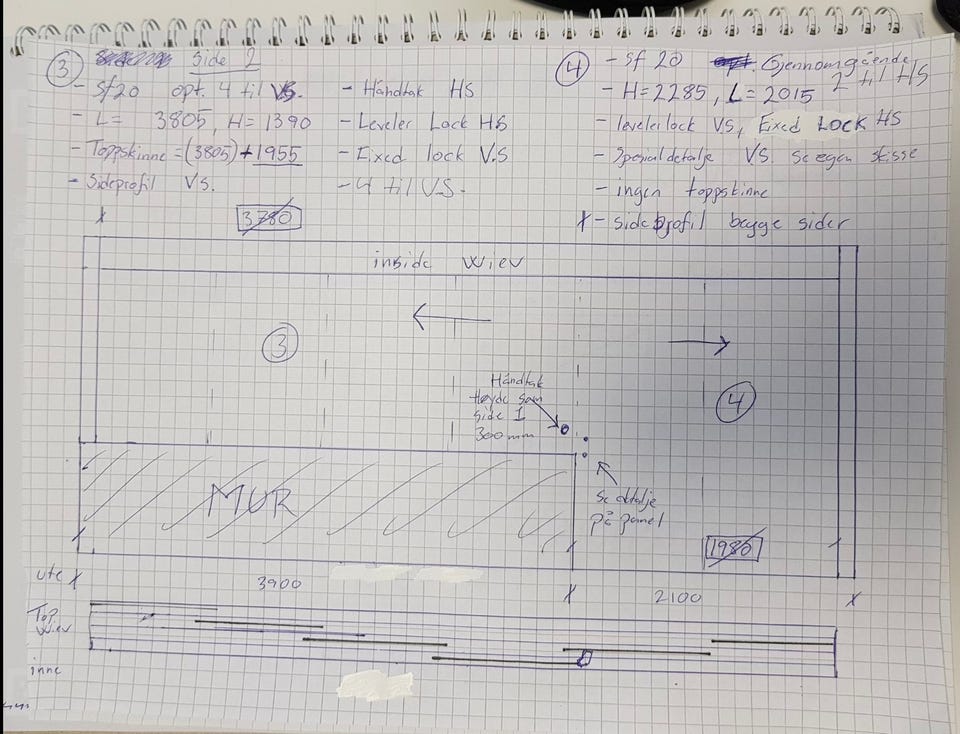 ③ Side 2
- Sf20 opt. 4 til VS.
- L= 3805, H= 1390
- Toppskinne = (3805) + 1955
- Sideprofil VS.
- Håndtak HS
- Leveler Lock HS
- Fixed lock V.S
- 4 til V.S.
④ - Sf 20 Gjennomgående
2 til HS
- H=2285, L=2015
- levelerlock VS, Fixed LOCK HS
- Spesialdetalje VS. se egen skisse
- ingen toppskinne
X - sideprofil begge sider
x 3780
inside wiev
③
④
Håndtak
Høyde som
side 1
300mm
MUR
Se detalje
på panel
1980
ute x 3900 x 2100 x
Top
Wiev
inne